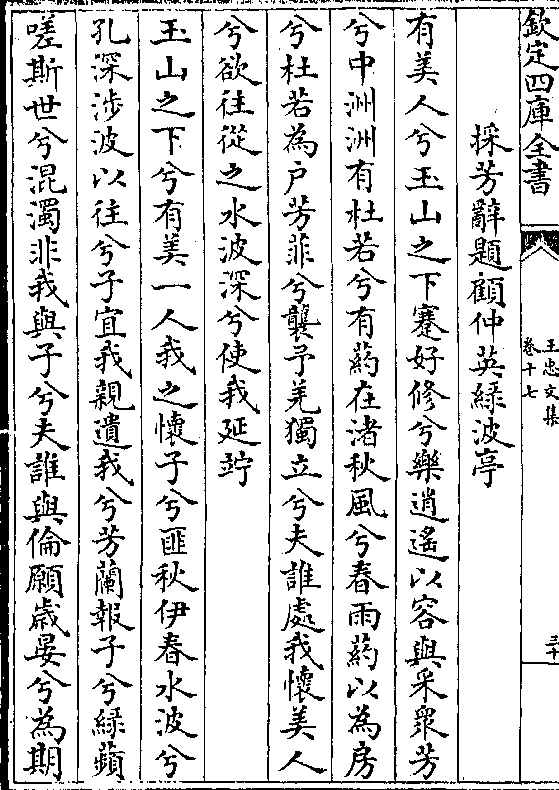 欽定四庫全書
王忠文集
卷十七
三十
採芳辭題顧仲英綠波亭
有美人兮玉山之下蹇好修兮樂逍遙以容與采衆芳
兮中洲洲有杜若兮有葯在渚秋風兮春雨葯以為房
兮杜若為戶芳菲兮襲予羌獨立兮夫誰處我懷美人
兮欲往從之水波深兮使我延竚
玉山之下兮有美一人我之懷子兮匪秋伊春水波兮
孔深涉波以往兮子宜我親遺我兮芳蘭報子兮綠蘋
嗟斯世兮混濁非我與子兮夫誰與倫願歲晏兮為期